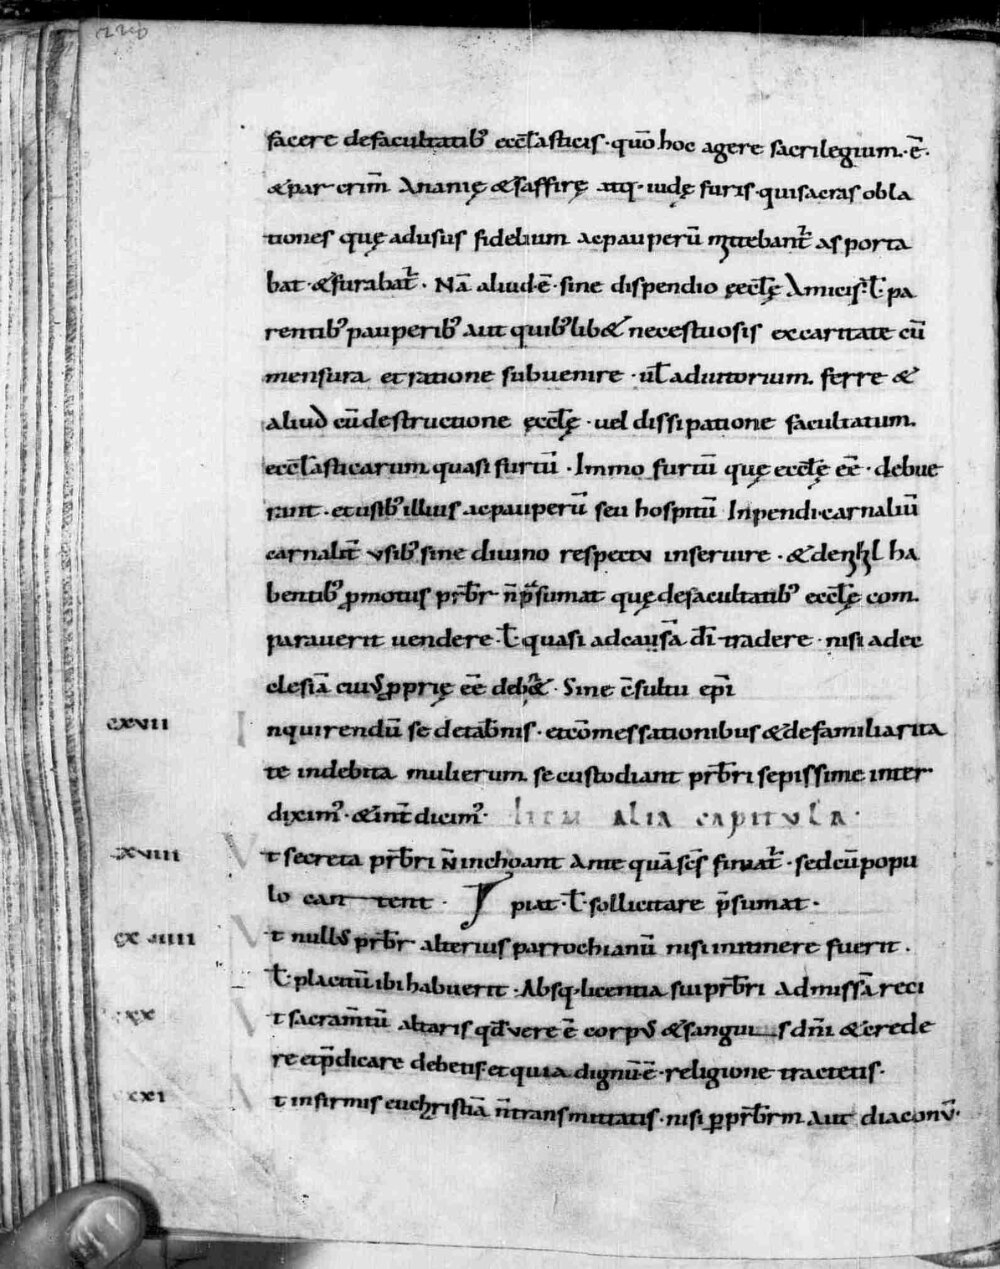 facere defacultatib; eccl̄asticis · quō hoc agere sacrilegium · ē ·
& par crim̄ Ananię & saffirę atq· iudę furis · quisacras obla
tiones quę adusus fidelium acpauperū mittebant̄ asporta
bat · & furabat̄ · Nā aliud · ē · sine dispendio ęccl̄ę Amicis · ł pa
rentib; pauperib; aut quib; lib& necestuosis excaritate cū
mensura et ratione subuenire · ul̄ adiutorium ferre &
aliud cū destructione ęccl̄ę · uel dissipatione facultatum
eccl̄asticarum quasi furtū · Immo furtū quę eccl̄ę eē · debue
runt · et usib; illius acpauperū seu hospitū Inpendi · carnaliū
carnalit̄ vsib; sine diuino respectu inseruire · & de ha
bentib; promotus prb̄r n̄ p̄sumat quę defacultatib; eccl̄ę com
parauerit uendere · ł quasi adcausā dī tradere · nisi adec
clesiā cui; pprię eē deb& · Sine c̄sultu ep̄i
cxvii Inquirendū se detab̄nis · etcōmessationibus & defamiliarita
te indebita mulierum se custodiant prb̄ri sepissime inter
dixim; · & int̄ dicim; · Item alia capitula ·
xviii Vt secreta prb̄ri n̄ inchoant Ante quā scs̄ finiat̄ · sed cū popu
lo can tent · piat · ł sollicitare p̄sumat ·
cx iiii Vt null; prb̄r alterius parrochianū nisi initinere fuerit ·
ł placitū ibi habuerit · Absq· licentia sui prb̄ri Admissā reci
xx Vt sacram̄tū altaris qd̄ vere ē corp; & sanguis dn̄i & crede
re et p̄dicare debetis · et quia dignū · ē · religione tractetis ·
xxi Vt infirmis euchristiā n̄ transmittatis · nisi p prb̄rm Aut diaconū ·